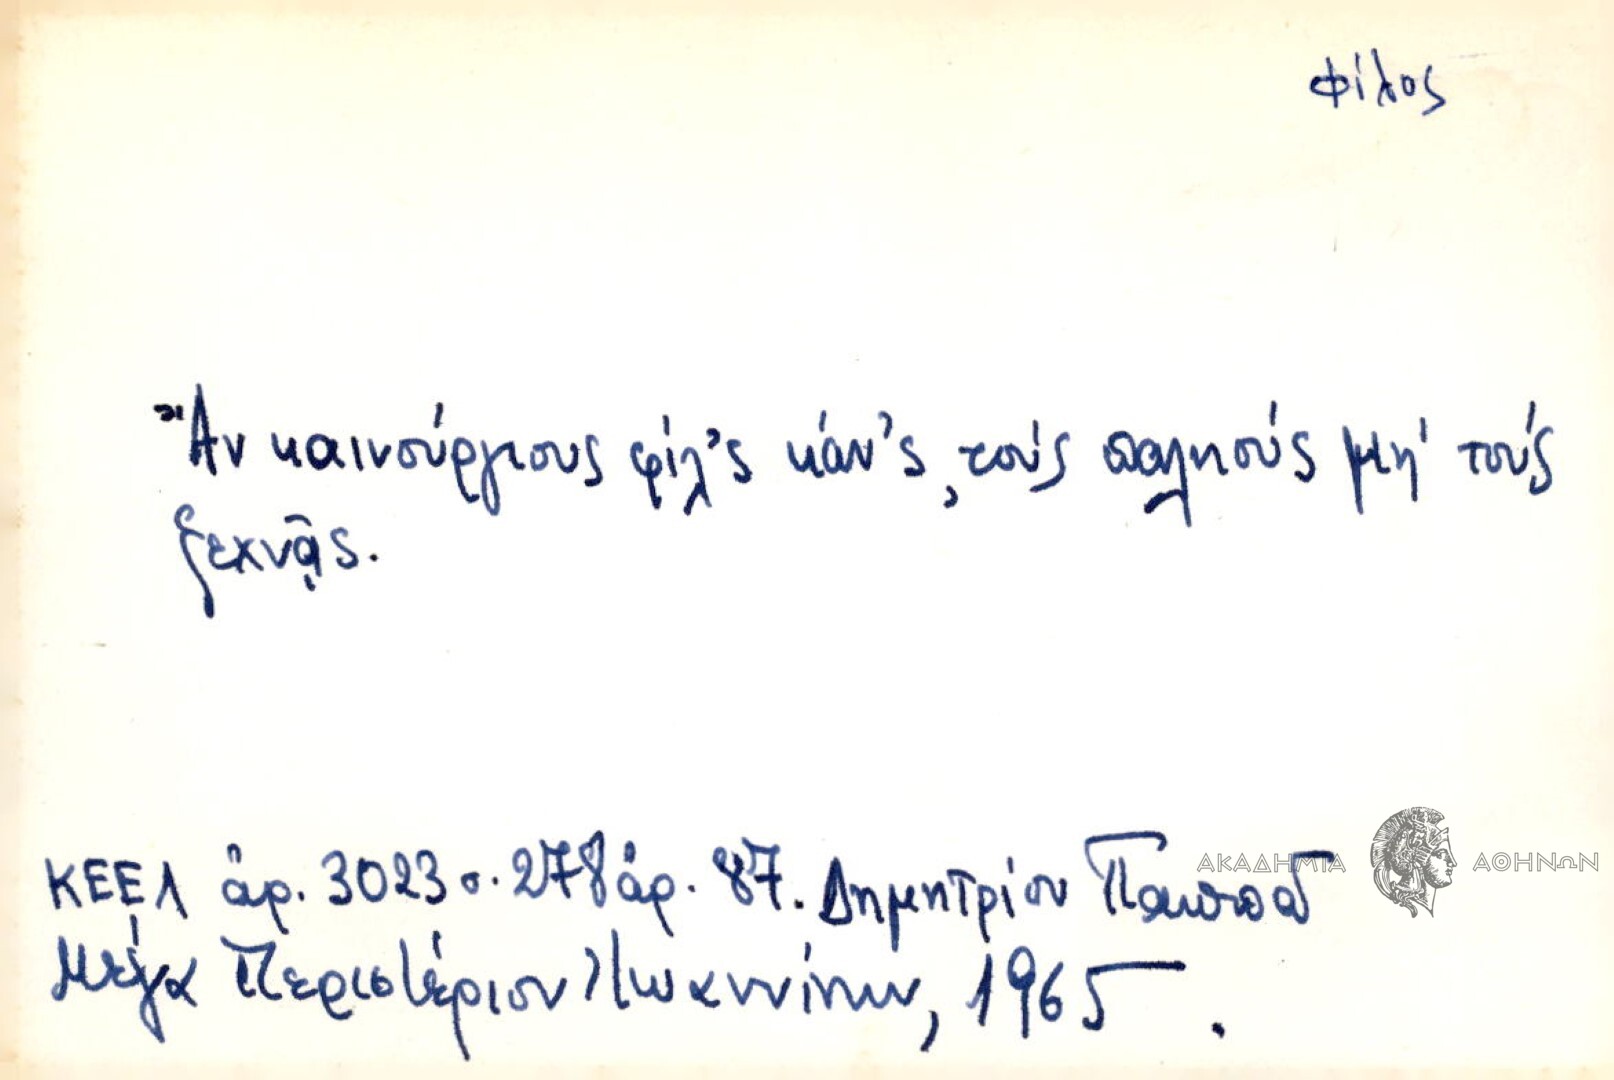 φίλος
Ἂν καινούργιους φίλ'ς κάν'ς, τούς παληούς μή τούς
ξεχνᾷς.
ΚΕΕΛ ἀρ. 3023 σ. 278 ἀρ. 87. Δημητρίου
ΑΚΑΔΗΜΙΑ ΑΘΗΝΩΝ
Μέγα Περιστέριον Ἰωαννίνων, 1965.